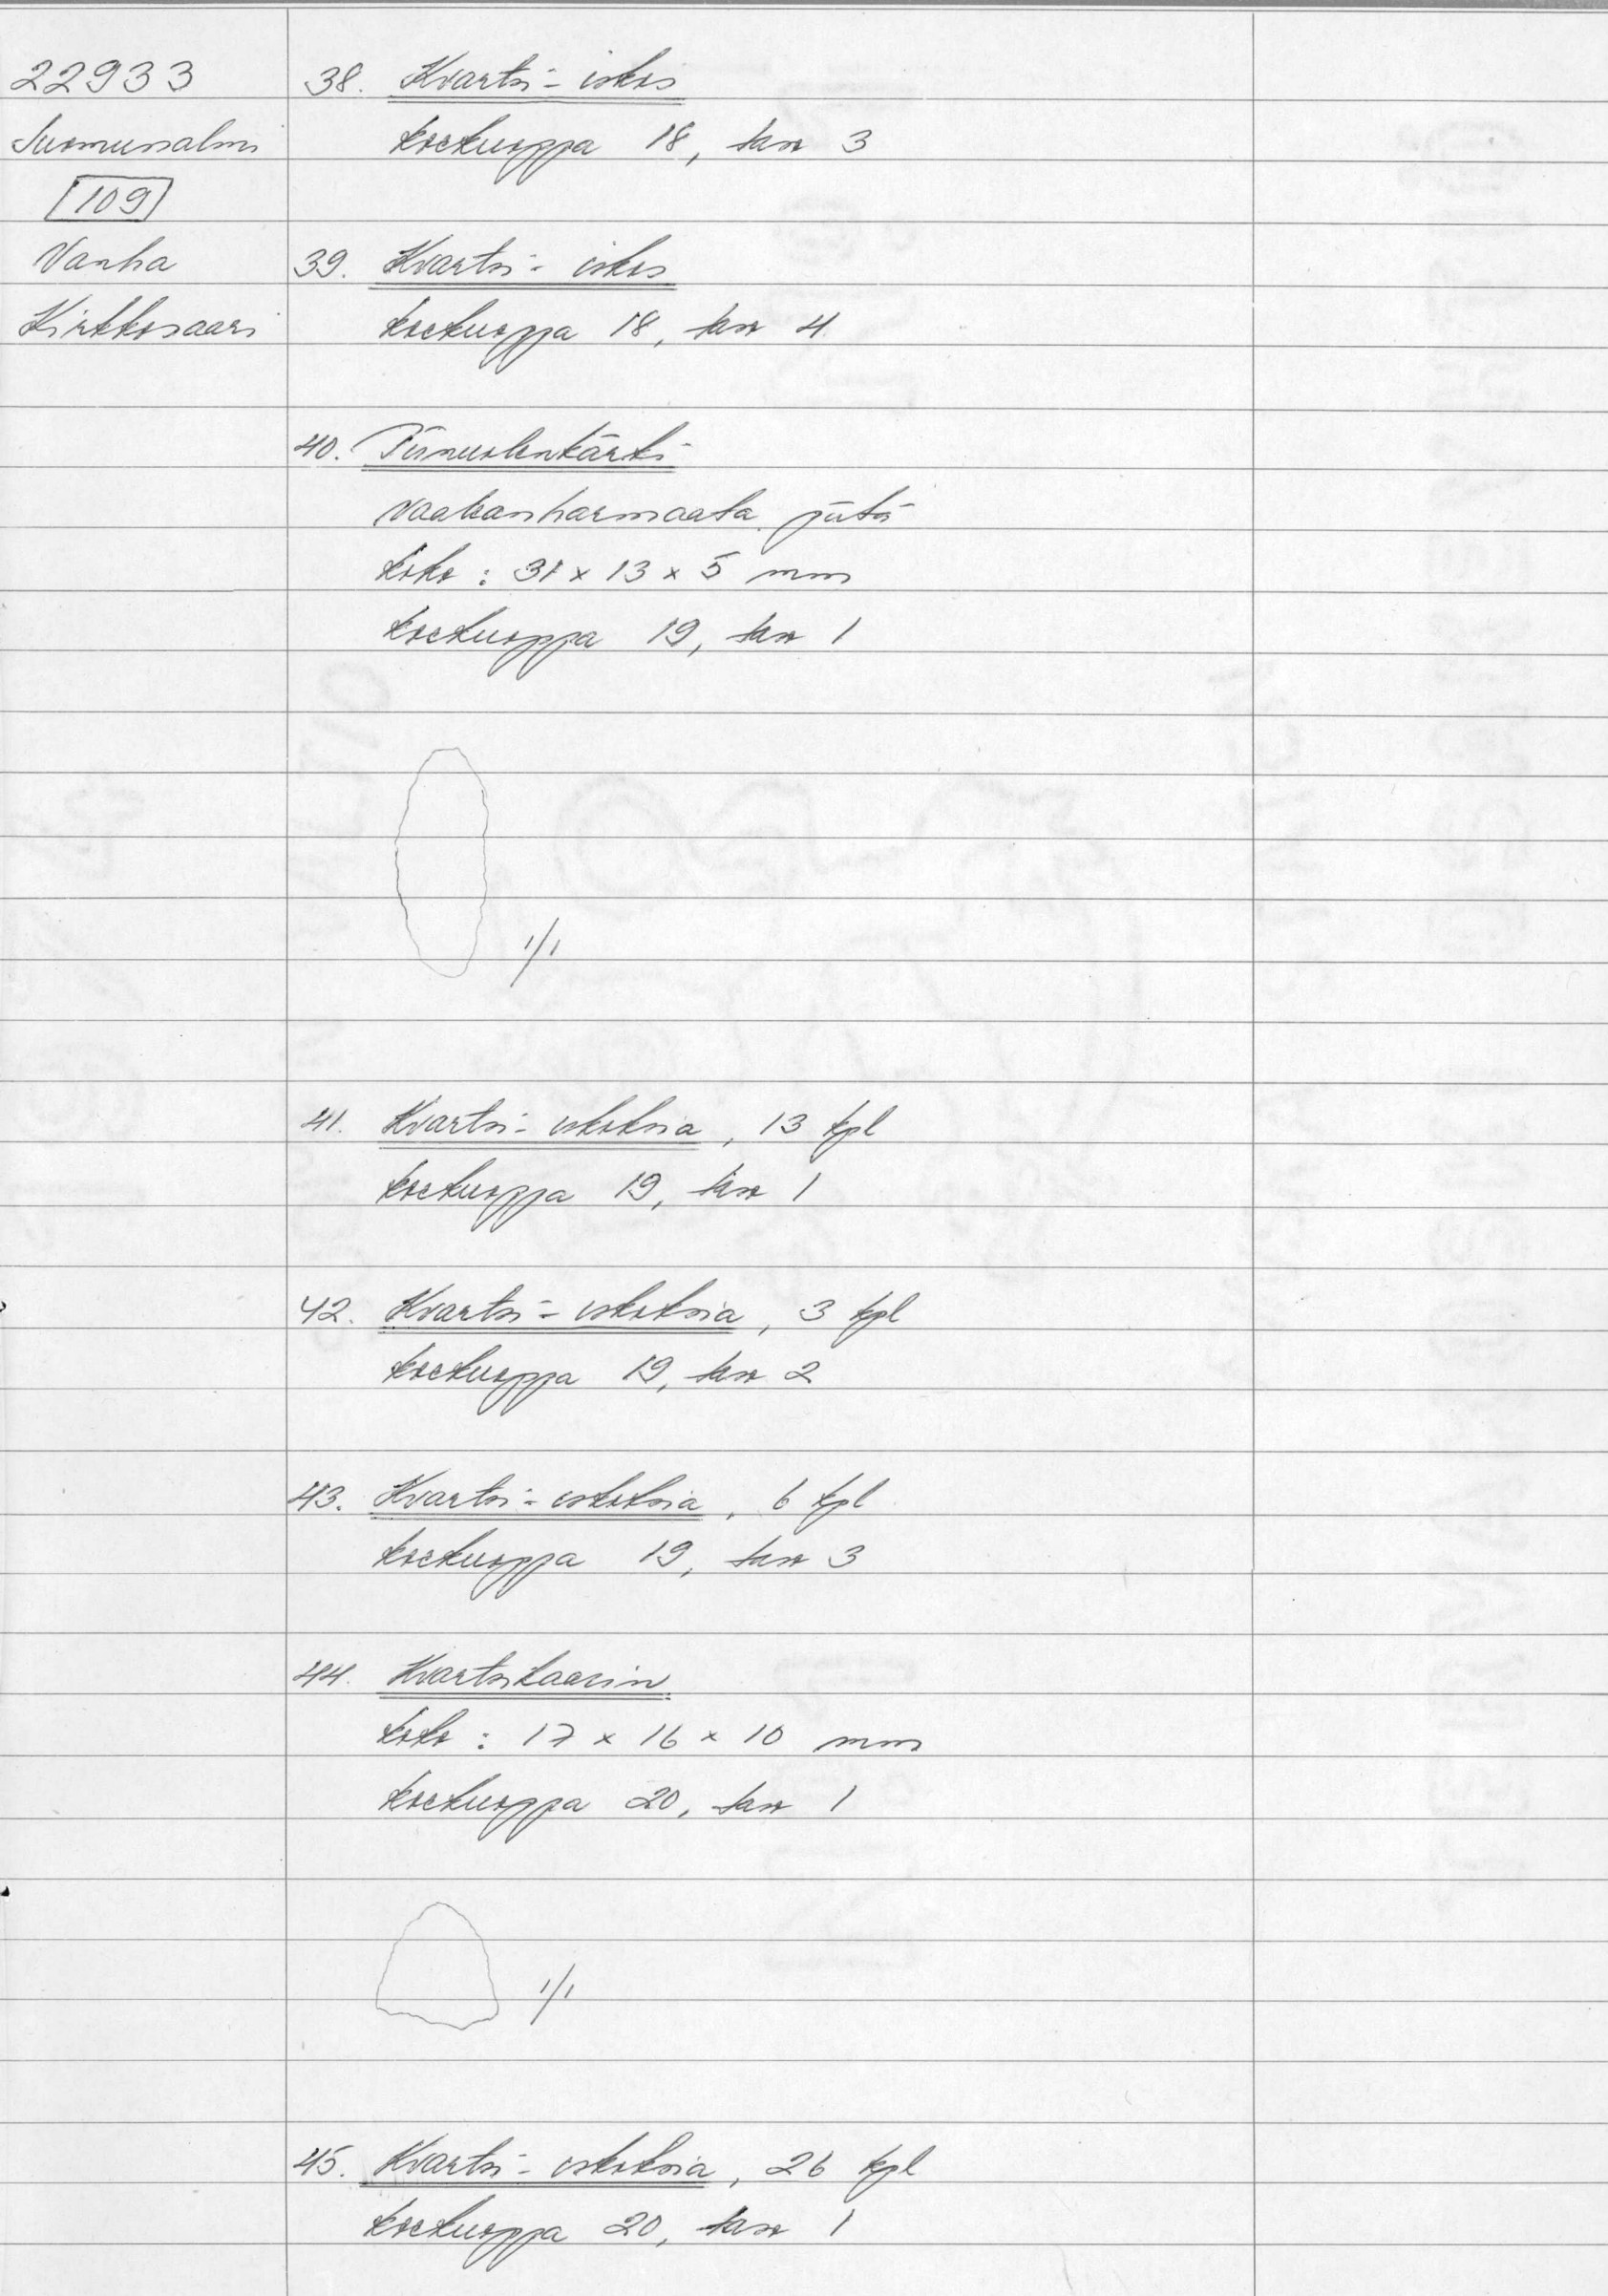 22933
Suomussalmi
109
Vanha
Kirkkosaari
38. Kvartsi-iskos
koekuoppa 18, taso 3
39. Kvartsi-iskos
koekuoppa 18, taso 4
40. Piinuolenkärki
vaaleanharmaata piitä
koko: 31 x 13 x 5 mm
koekuoppa 19, taso 1
1/1
41. Kvartsi-iskoksia, 13 kpl
koekuoppa 19, taso 1
42. Kvartsi-iskoksia, 3 kpl
koekuoppa 19, taso 2
43. Kvartsi-iskoksia, 6 kpl
koekuoppa 19, taso 3
44. Kvartsikaavin
koko: 17 x 16 x 10 mm
koekuoppa 20, taso 1
1/1
45. Kvartsi-iskoksia, 26 kpl
koekuoppa 20, taso 1